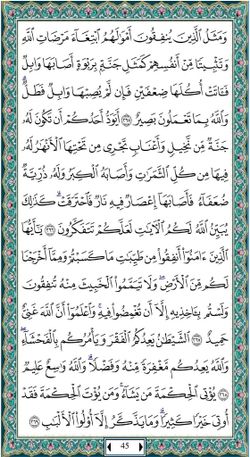 وَمَثَلُ ٱلَّذِينَ يُنفِقُونَ أَمۡوَٰلَهُمُ ٱبۡتِغَآءَ مَرۡضَاتِ ٱللَّهِ
وَتَثۡبِيتٗا مِّنۡ أَنفُسِهِمۡ كَمَثَلِ جَنَّةِۭ بِرَبۡوَةٍ أَصَابَهَا وَابِلٞ
فَـَٔاتَتۡ أُكُلَهَا ضِعۡفَيۡنِ فَإِن لَّمۡ يُصِبۡهَا وَابِلٞ فَطَلّٞۗ
وَٱللَّهُ بِمَا تَعۡمَلُونَ بَصِيرٌ ٢٦٥ أَيَوَدُّ أَحَدُكُمۡ أَن تَكُونَ لَهُۥ
جَنَّةٞ مِّن نَّخِيلٖ وَأَعۡنَابٖ تَجۡرِي مِن تَحۡتِهَا ٱلۡأَنۡهَٰرُ لَهُۥ
فِيهَا مِن كُلِّ ٱلثَّمَرَٰتِ وَأَصَابَهُ ٱلۡكِبَرُ وَلَهُۥ ذُرِّيَّةٞ
ضُعَفَآءُ فَأَصَابَهَآ إِعۡصَارٞ فِيهِ نَارٞ فَٱحۡتَرَقَتۡۗ كَذَٰلِكَ
يُبَيِّنُ ٱللَّهُ لَكُمُ ٱلۡأٓيَٰتِ لَعَلَّكُمۡ تَتَفَكَّرُونَ ٢٦٦ يَٰٓأَيُّهَا
ٱلَّذِينَ ءَامَنُوٓاْ أَنفِقُواْ مِن طَيِّبَٰتِ مَا كَسَبۡتُمۡ وَمِمَّآ أَخۡرَجۡنَا
لَكُم مِّنَ ٱلۡأَرۡضِۖ وَلَا تَيَمَّمُواْ ٱلۡخَبِيثَ مِنۡهُ تُنفِقُونَ
وَلَسۡتُم بِـَٔاخِذِيهِ إِلَّآ أَن تُغۡمِضُواْ فِيهِۚ وَٱعۡلَمُوٓاْ أَنَّ ٱللَّهَ غَنِيٌّ
حَمِيدٌ ٢٦٧ ٱلشَّيۡطَٰنُ يَعِدُكُمُ ٱلۡفَقۡرَ وَيَأۡمُرُكُم بِٱلۡفَحۡشَآءِۖ
وَٱللَّهُ يَعِدُكُم مَّغۡفِرَةٗ مِّنۡهُ وَفَضۡلٗاۗ وَٱللَّهُ وَٰسِعٌ عَلِيمٞ ٢٦٨
يُؤۡتِي ٱلۡحِكۡمَةَ مَن يَشَآءُۚ وَمَن يُؤۡتَ ٱلۡحِكۡمَةَ فَقَدۡ
أُوتِيَ خَيۡرٗا كَثِيرٗاۗ وَمَا يَذَّكَّرُ إِلَّآ أُوْلُواْ ٱلۡأَلۡبَٰبِ ٢٦٩
45